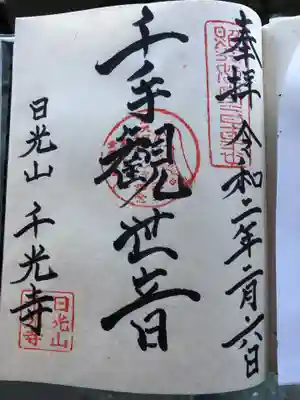 奉拝 令和二年二月六日
千手觀世音
日光山 千光寺
日光山